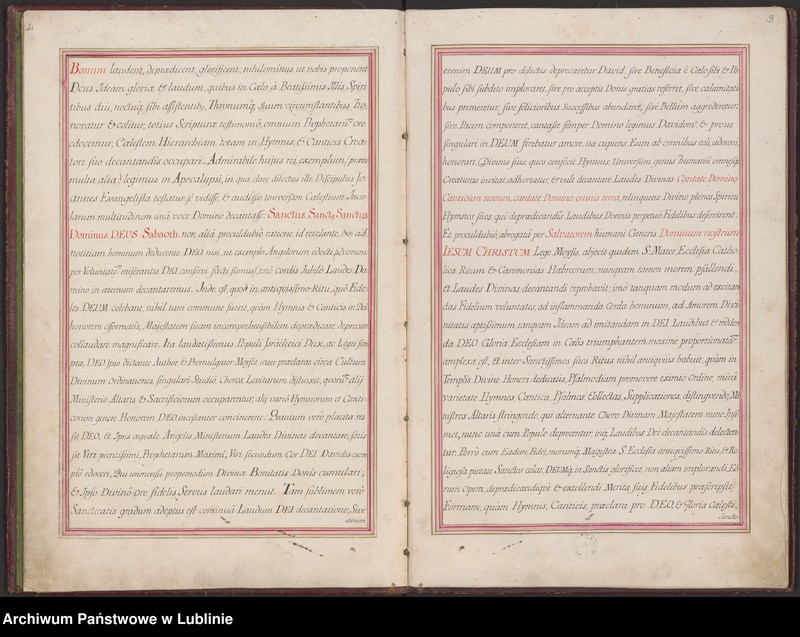 2
Bonum laudent, depraedicent, glorificent, nihilominus ut nobis proponeret
Deus Ideam gloriae & laudum, quibus in Coelo, â Beatissimis Illis, Spiri
tibus diù, noctuq; sibi assistentib9, Thronumq; Suum circumstantibus Ho
noratur & colitur, totius Scripturae testimoniô, omnium Prophetarum ore
edocemur, Coelestem Hierarchiam totam in Hymnis, & Canticis Crea
tori suo decantandis occupari. Admirabile hujus rei exemplum (praeter
multa alia) legimus in Apocalypsi, in qua clarè dilectus ille Discipulus Jo
annes Evangelista testatur se vidisse, & audisse universam Caelestium Inco
larum multitudinem unâ voce Domino decantasse: Sanctus, Sanct9, Sanctus
Dominus DEUS Sabaoth. non aliâ proculdubiò ratione id revelante, & ad
notitiam hominum deducente DEO, nisi, ut exemplo Angelorum edocti peccatorum
per Voluntatem miserantis DEI, conservi facti sumus, totô cordis Jubilô Laudes Do
mino in aeternum decantaremus. Inde est, quod in antiquissimo Ritu, quô Fide
les DEUM colebant, nihil tam commune fuerit, quàm Hymnis & Canticis in Dei
honorem efformatis, Majestatem suam incomprehensibilem depraedicare deprecari
collaudare magnificare. Ita laudatissimus Populi Israëlitici Dux, ac Legis scri
ptae, DEO Ipsô dictante Author & Promulgator Moyses inter praeclaras circa Cultum
Divinum Ordinationes, singulari Studiô, Choros Levitarum distinxit, quorum alij
Ministerio Altaris & Sacrificiorum occuparentur, alij variô Hymnorum et Canti-
corum genere Honorem DEO incessanter concinerent. Quantum verò placita res
sit DEO, & Ipsis aequale Angelis Ministerium Laudes Divinas decantare, satis
sit Viri pientissimi, Prophetarum Maximi, Viri secundùm Cor DEI Davidis exem
plô edoceri, Qui immensis propemodùm Divinae Bonitatis Donis cumulari,
& Ipso Divinô Ore fidelis Servus laudari meruit. Tam sublimem verò
Sanctitatis gradum adeptus est continuâ Laudum DEI decantatione, Sive
etenim
3
etenim DEUM pro delictis deprecaretur David, sive Beneficia è Coelo sibi, & Po
pulo sibi subdito imploraret, sive pro acceptis Donis gratias referret, sive calamitati
bus premeretur, sive felicioribus Successibus abundaret, sive Bellum aggrederetur,
sive Pacem componeret, cantasse semper Domino legimus Davidem, & prout
singulari in DEUM ferebatur amore, ita cupiens Eum ab omnibus coli, adorari,
honorari, Divinis suis, quos confecit Hymnis, Universum genus humanum omnesq;
Creaturas invitat, adhortatur, & vult decantare Laudes Divinas Cantate Domino
Canticum novum, cantate Domino omnis terra, relinquens Divino plenos Spiritu
Hymnos suos, qui depraedicandis Laudibus Divinis perpetuò Fidelibus deservirent.
Et proculdubiò, abrogatâ per Salvatorem humani Generis Dominum nostrum
IESUM CHRISTUM Lege Moysis, abjecit quidem S. Mater Ecclesia Catho
lica Ritum & Caeremonias Hebraeorum, nunquam tamen morem psallendi,
et Laudes Divinas decantandi reprobavit; imò tanquam modum ad excitan
das Fidelium voluntates, ad inflammanda Corda hominum, ad Amorem Divi
nitatis aptissimum, tanquam Ideam ad imitandam in DEI Laudibus & redden
da DEO Gloria Ecclesiam in Coelis triumphantem maximè proportionatam
amplexa est, & inter Sanctissimos suos Ritus nihil antiquius habuit, quàm in
Templis Divino Honori dedicatis, Psalmodiam promovere eximio Ordine, mirâ
varietate Hymnos, Cantica, Psalmos, Collectas, Supplicationes, distinguendo, Mi
nistros Altaris stringendo, qui alternante Choro Divinam Majestatem nunc Ipsi-
met, nunc unà cum Populo deprecentur, inq; Laudibus Dei decantandis delecten
tur. Porrò cum Eadem Fidei, morumq; Magistra S. Ecclesia antiquissimo Ritu, & Re
ligiosa pietate Sanctos colat, DEUMq; in Sanctis glorificet, non aliam implorandi Eo
rum Opem, depraedicandiquè & excellendi Merita suis Fidelibus praescripsit
Formam, quàm Hymnis, Canticis, praeclara pro DEO, & Gloria Coelesti,
Sancto
Archiwum Państwowe w Lublinie